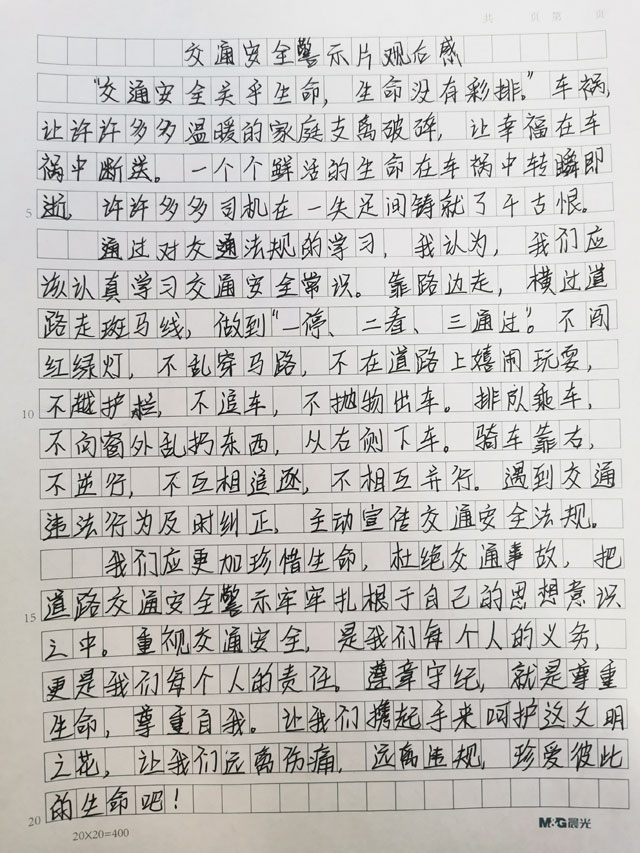 共 页 第 页
交通安全警示片观后感
“交通安全关乎生命，生命没有彩排。”车祸，
让许许多多温暖的家庭支离破碎，让幸福在车
祸中断送。一个个鲜活的生命在车祸中转瞬即
5 逝，许许多多司机在一失足间铸就了千古恨。
通过对交通法规的学习，我认为，我们应
该认真学习交通安全常识。靠路边走，横过道
路走斑马线，做到“一停、二看、三通过”。不闯
红绿灯，不乱穿马路，不在道路上嬉闹玩耍，
10 不越护栏，不追车，不抛物出车。排队乘车，
不向窗外乱扔东西，从右侧下车。骑车靠右，
不逆行，不互相追逐，不相互并行。遇到交通
违法行为及时纠正，主动宣传交通安全法规。
我们应更加珍惜生命，杜绝交通事故，把
15 道路交通安全警示牢牢扎根于自己的思想意识
之中。重视交通安全，是我们每个人的义务，
更是我们每个人的责任。遵章守纪，就是尊重
生命，尊重自我。让我们携起手来呵护这文明
之花，让我们远离伤痛，远离违规，珍爱彼此
20 的生命吧！
20X20=400 M&G晨光